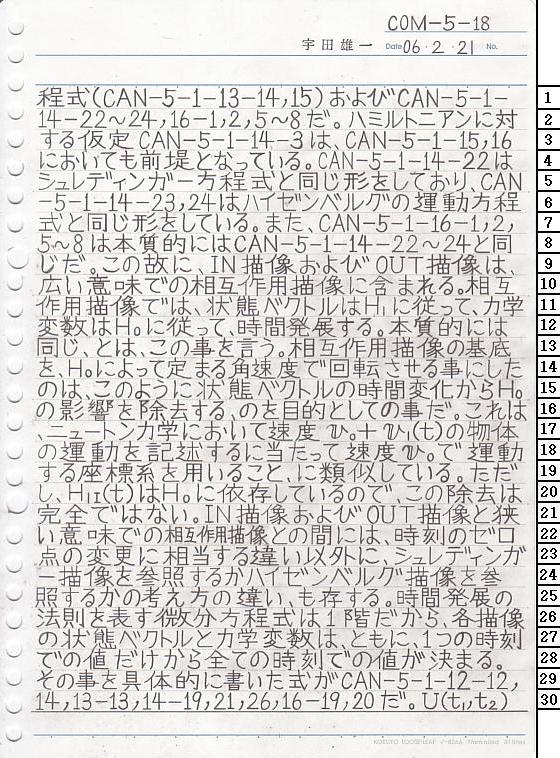 COM-5-18
宇田雄一 Date 06・2・21 No.
程式(CAN-5-1-13-14,15)およびCAN-5-1-
14-22~24,16-1,2,5~8だ。ハミルトニアンに対
する仮定CAN-5-1-14-3は、CAN-5-1-15,16
においても前堤となっている。CAN-5-1-14-22は
シュレディンガー方程式と同じ形をしており、CAN
-5-1-14-23,24はハイゼンベルグの運動方程
式と同じ形をしている。また、CAN-5-1-16-1,2,
5~8は本質的にはCAN-5-1-14-22~24と同
じだ。この故に、IN描像およびOUT描像は、
広い意味での相互作用描像に含まれる。相互
作用描像では、状態ベクトルはH₁に従って、力学
変数はH₀に従って、時間発展する。本質的には
同じ、とは、この事を言う。相互作用描像の基底
を、H₀によって定まる角速度で回転させる事にした
のは、このように状態ベクトルの時間変化からH₀
の影響を除去する、のを目的としての事だ。これは
、ニュートン力学において速度v₀+v₁(t)の物体
の運動を記述するに当たって速度v₀で運動
する座標系を用いること、に類似している。ただ
し、H₁I(t)はH₀に依存しているので、この除去は
完全ではない。IN描像およびOUT描像と狭
い意味での相互作用描像との間には、時刻のゼロ
点の変更に相当する違い以外に、シュレディンガ
ー描像を参照するかハイゼンベルグ描像を参
照するかの考え方の違い、も存する。時間発展の
法則を表す微分方程式は1階だから、各描像
の状態ベクトルと力学変数は、ともに、1つの時刻
での値だけから全ての時刻での値が決まる。
その事を具体的に書いた式がCAN-5-1-12-12,
14,13-13,14-19,21,26,16-19,20だ。U(t₁,t₂)
1
2
3
4
5
6
7
8
9
10
11
12
13
14
15
16
17
18
19
20
21
22
23
24
25
26
27
28
29
30
KOKUYO LOOSE-LEAF ノ-836A 7mm ruled 31 lines